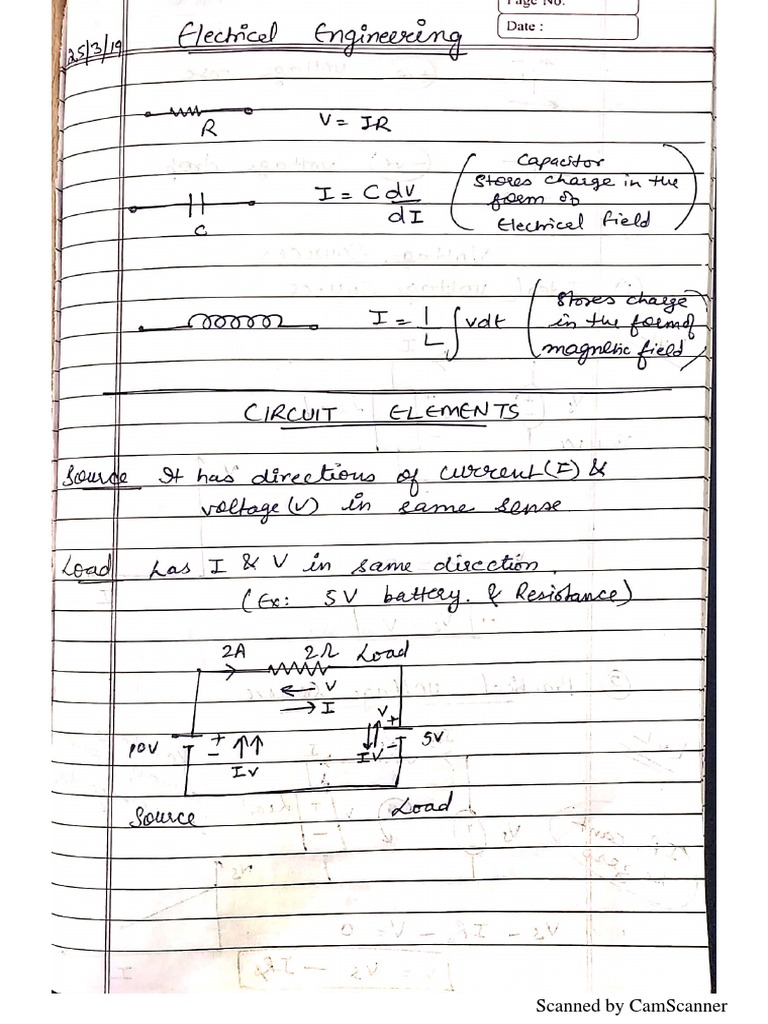 Page No.
Date :
25/3/19
Electrical Engineering
R
V = IR
C
I = C dV/dI
(Capacitor
Stores charge in the
form of
Electrical field)
I = 1/L ∫ vdt
(Stores charge
in the form of
magnetic field)
CIRCUIT ELEMENTS
Source It has directions of current (I) &
voltage (v) in same sense
Load has I & V in same direction.
(Ex: 5V battery. & Resistance)
2A 2Ω Load
V
I
10V + - I V
V + - I V 5V
Source
Load
Scanned by CamScanner